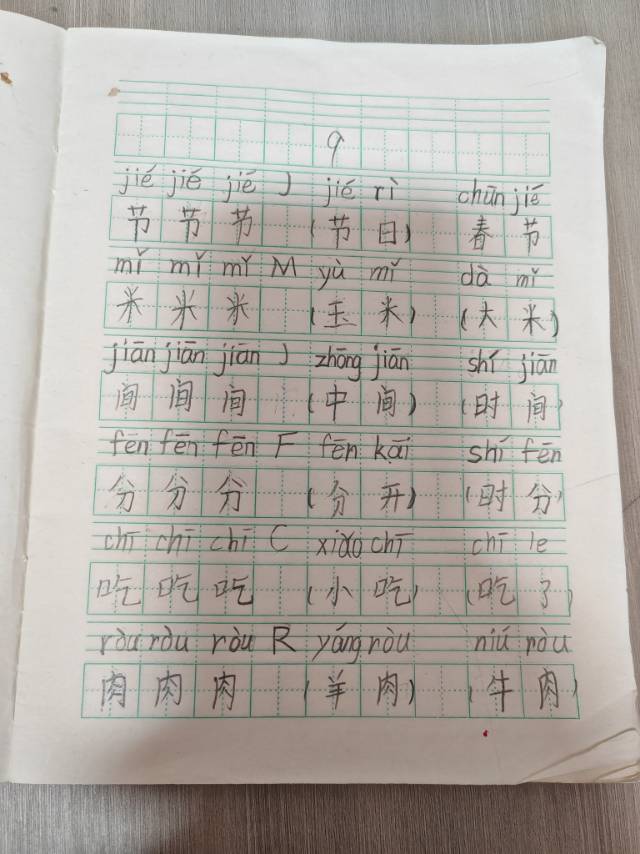 9
jié jié jié J jié rì chūn jié
节 节 节 (节 日) 春 节
mǐ mǐ mǐ M yù mǐ dà mǐ
米 米 米 (玉 米) (大 米)
jiān jiān jiān J zhōng jiān shí jiān
间 间 间 (中 间) (时 间)
fēn fēn fēn F fēn kāi shí fēn
分 分 分 (分 开) (时 分)
chī chī chī C xiǎo chī chī le
吃 吃 吃 (小 吃) (吃 了)
ròu ròu ròu R yáng ròu niú ròu
肉 肉 肉 (羊 肉) (牛 肉)